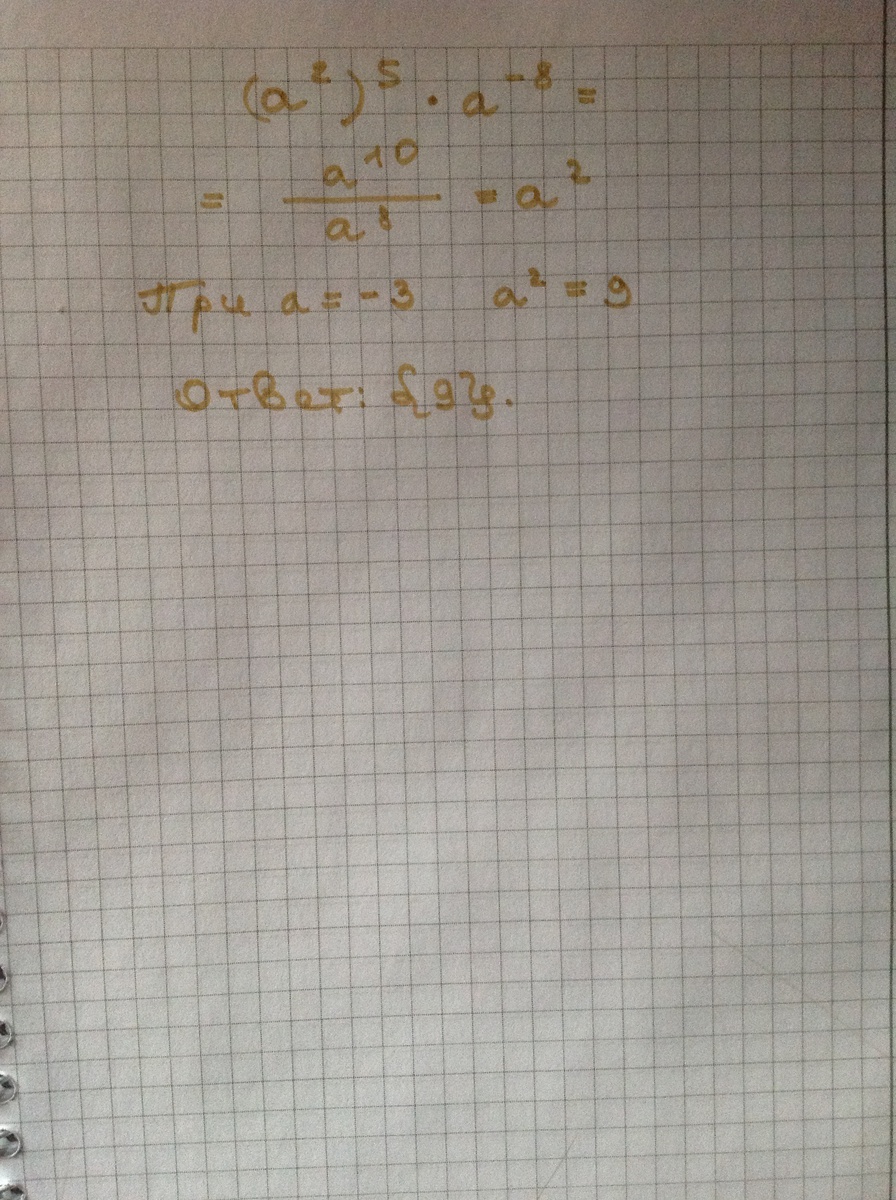 (a²)⁵ · a⁻⁸ =
= a¹⁰/a⁸ = a²
При a = -3 a² = 9
Ответ: {9}.